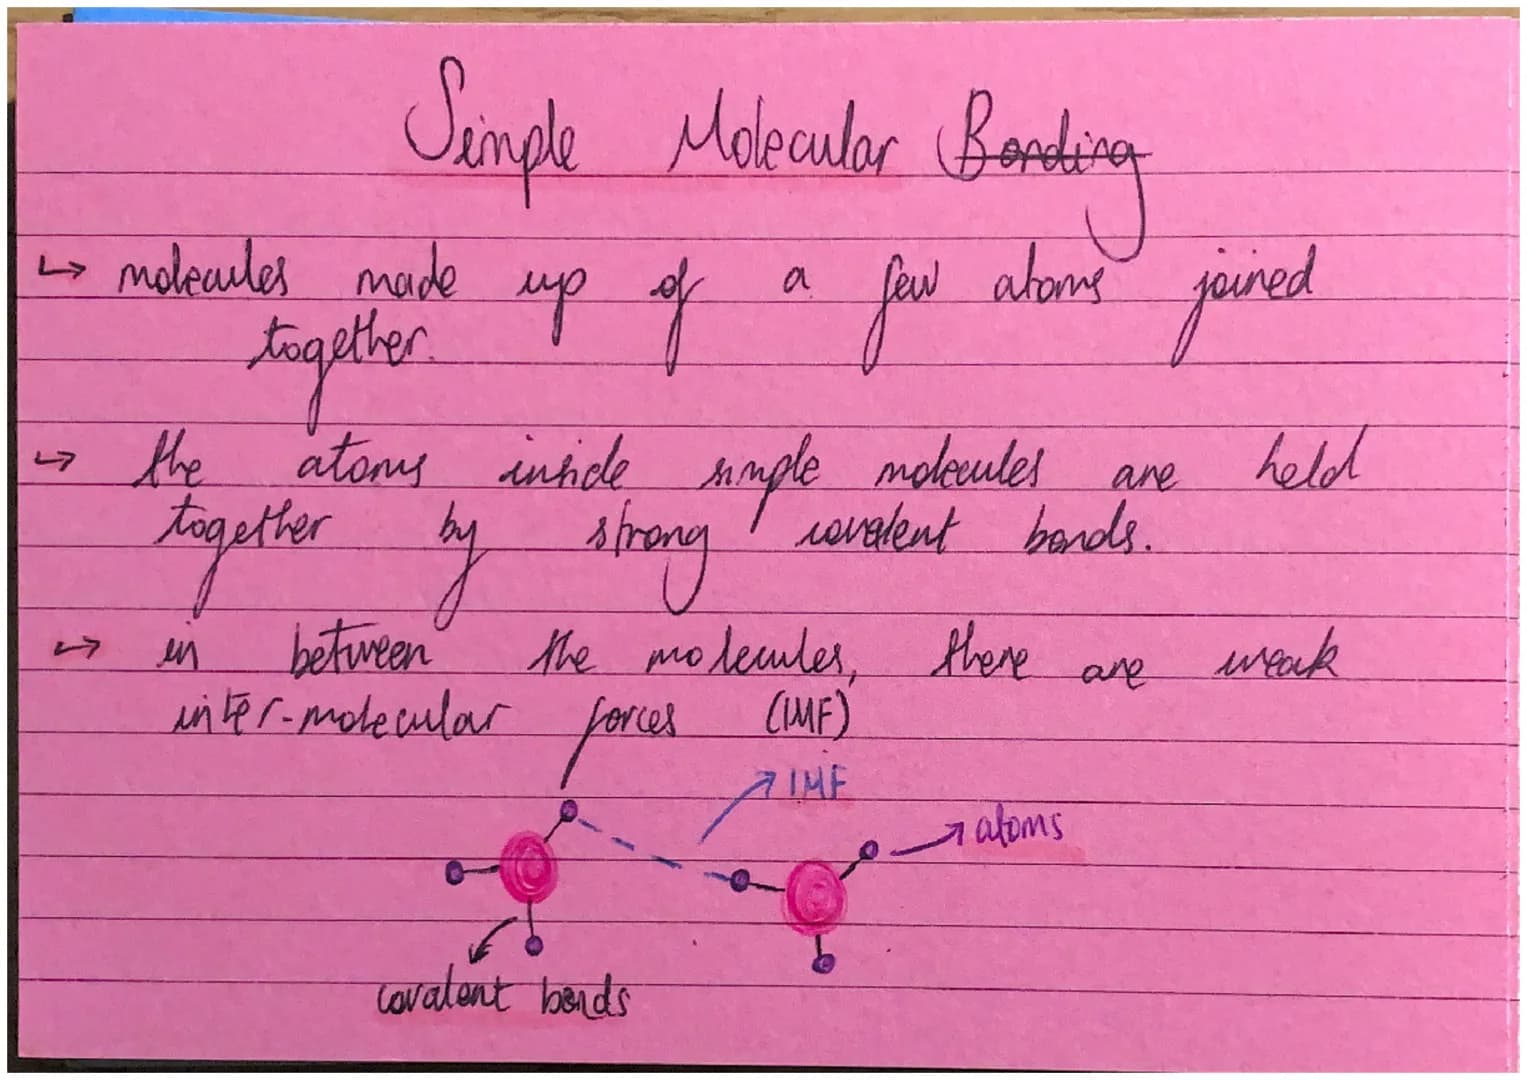 Simple Molecular Bonding
↳ molecules made up of a few atoms joined
together.
↳ the atoms inside simple molecules are held
together by strong covalent bonds.
↳ in between the molecules, there are weak
inter-molecular forces (IMF)
IMF
atoms
covalent bonds